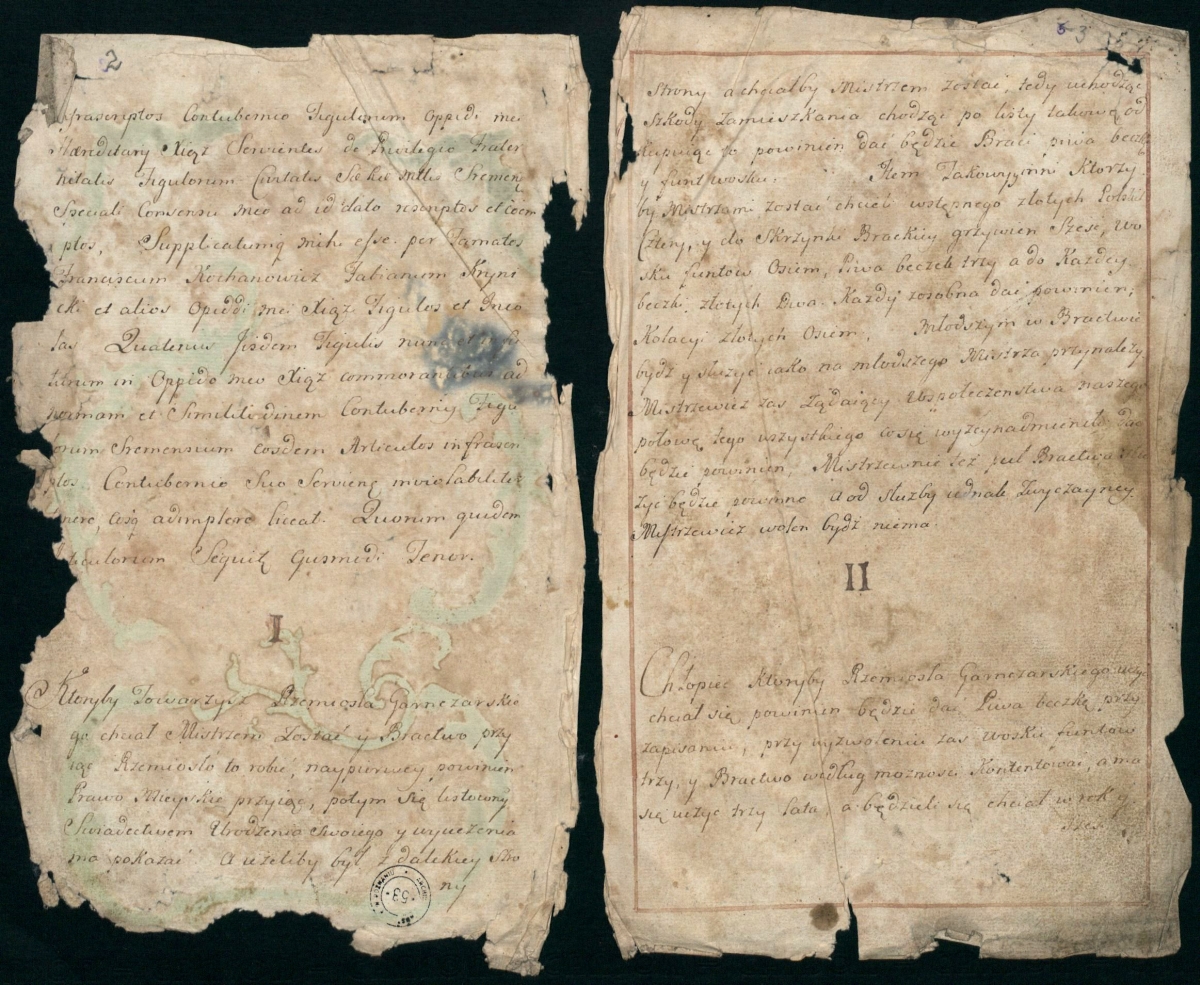 2
frascriptos Contubernio Figulorum Oppidi mei
Hæreditary Xiąż Servientes de Privilegio Frater
nitatis Figulorum Civitatis Sremen
Speciali Consensu meo ad id dato rescriptos et
ptos, Supplicatumq mihi esse per Famatos
Franciscum Kochanowicz Fabianum Kryni
cki et alios Opiddi mei Xiąż Figulos et Inco
las Quatenus Jisdem Figulis nunc et
turum in Oppido meo Xiąż commorantibus ad
normam et Similitudinem Contuberny Figu
lorum Sremensium eosdem Articulos infrascri
ptos Contubernio Suo Servienę inviolabiliter
nere, adimplere liceat. Quorum quidem
ticulorum Sequitę Tenor.
I
Ktoryby Towarzysz Rzemiosła Garnczarskie
go chciał Mistrzem Zostać y Bractwo przy
iąć Rzemiosło to robić, naypierwey powinien
Prawo Mieyskie przyiąć, potym się listowny
Swiadectwem Urodzenia Swoiego y wyuczenia
ma pokazać. A ieżeliby był z dalekiey Stro
ny
53
3
Strony a chciałby Mistrzem zostać, tedy uchodząc
Szkody Zamieszkania chodząc po listy takową od
kupuiąc to powinien dać będzie Braci piwa beczkę
y funt wosku. Item Takowi Ktorzy
by Mistrzami zostać chcieli wstępnego złotych Polskich
Cztery, y do Skrzynki Brackiey grzywien Szesc, Wo
sku funtow Osiem, Piwa beczek trzy a do Każdey
beczki złotych Dwa Każdy zosobna dać powinien;
Kolacyi złotych Osiem, Młodszym w Bractwie
bydź y służyć iako na młodszego Mistrza przynależy
Mistrzewicz zas Żądaiący Wspołeczenstwa naszego
połowę tego wszystkiego co się wyzey nadmieniło dać
będzie powinien, Mistrzewnie też puł Bractwa
żyć będzie powinno a od służby iednak Zwyczayney
Mistrzewicz wolen bydź niema.
II
Chłopiec Ktoryby Rzemiosła Garnczarskiego uczyć
chciał się powinien będzie dać Piwa beczkę przy
zapisaniu, przy wyzwoleniu zas wosku funtow
trzy, y Bractwo według możnosci Kontentować, a ma
się uczyć trzy lata, a będzieli się chciał w rok y